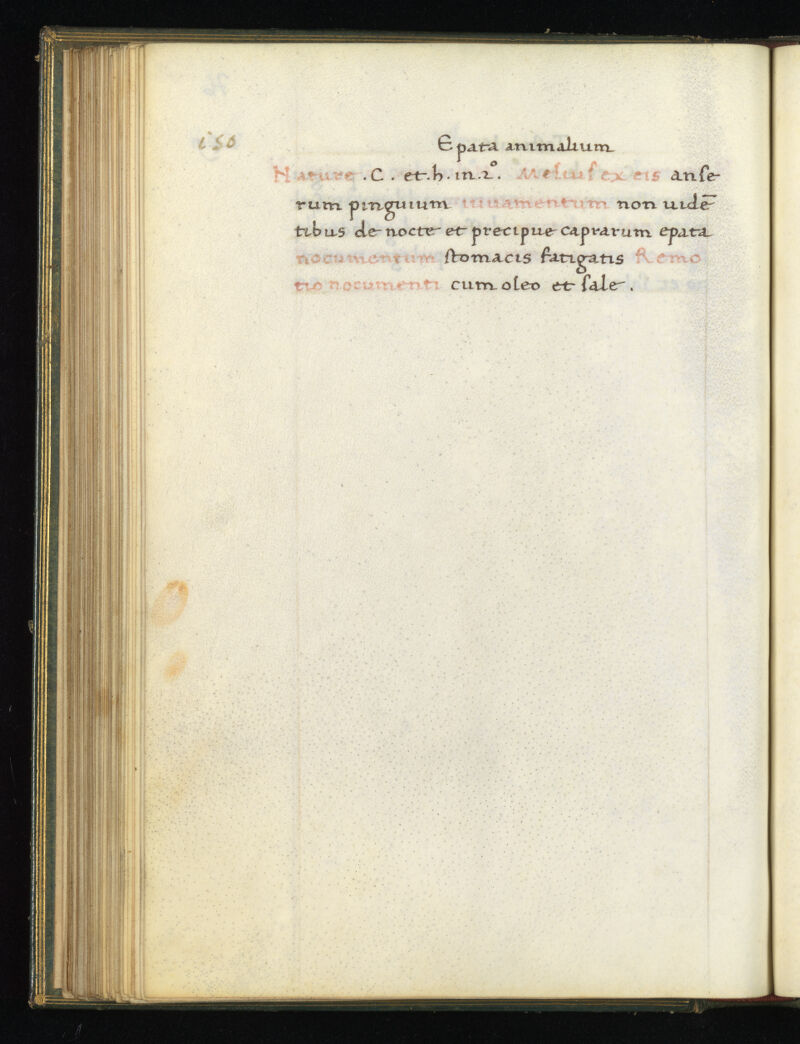 150
Epata animalium
Nature . C . et . h . in . 2° . Melius ex eis anse
rum pinguium iuuamentum non uidē
tibus de nocte et precipue caprarum epata
nocumentum stomacis fatigatis Remo
tio nocumenti cum oleo et sale .